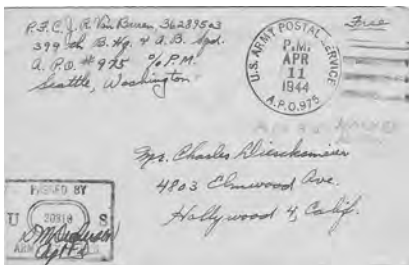 P.F.C. J. R. Van Buren 36289503
399th B. Hq. & A. B. Sqd.
A.P.O. # 975 % P.M.
Seattle, Washington
Free
U.S. ARMY POSTAL SERVICE
P.M.
APR
11
1944
A.P.O. 975
Mr. Charles Dieckmeier
4803 Elmwood Ave.
Hollywood 4, Calif.
PASSED BY
U S
ARMY